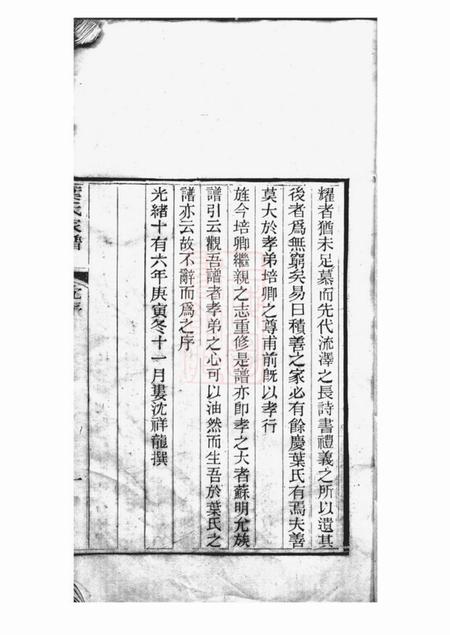 耀者猶未足慕而先代流澤之長詩書禮義之所以遺其
後者爲無窮矣易曰積善之家必有餘慶葉氏有焉夫善
莫大於孝弟培卿之尊甫前旣以孝行
旌今培卿繼親之志重修是譜亦卽孝之大者蘇明允族
譜引云觀吾譜者孝弟之心可以油然而生吾於葉氏之
譜亦云故不辭而爲之序
光緒十有六年庚寅冬十一月婁沈祥龍撰
葉氏家譜